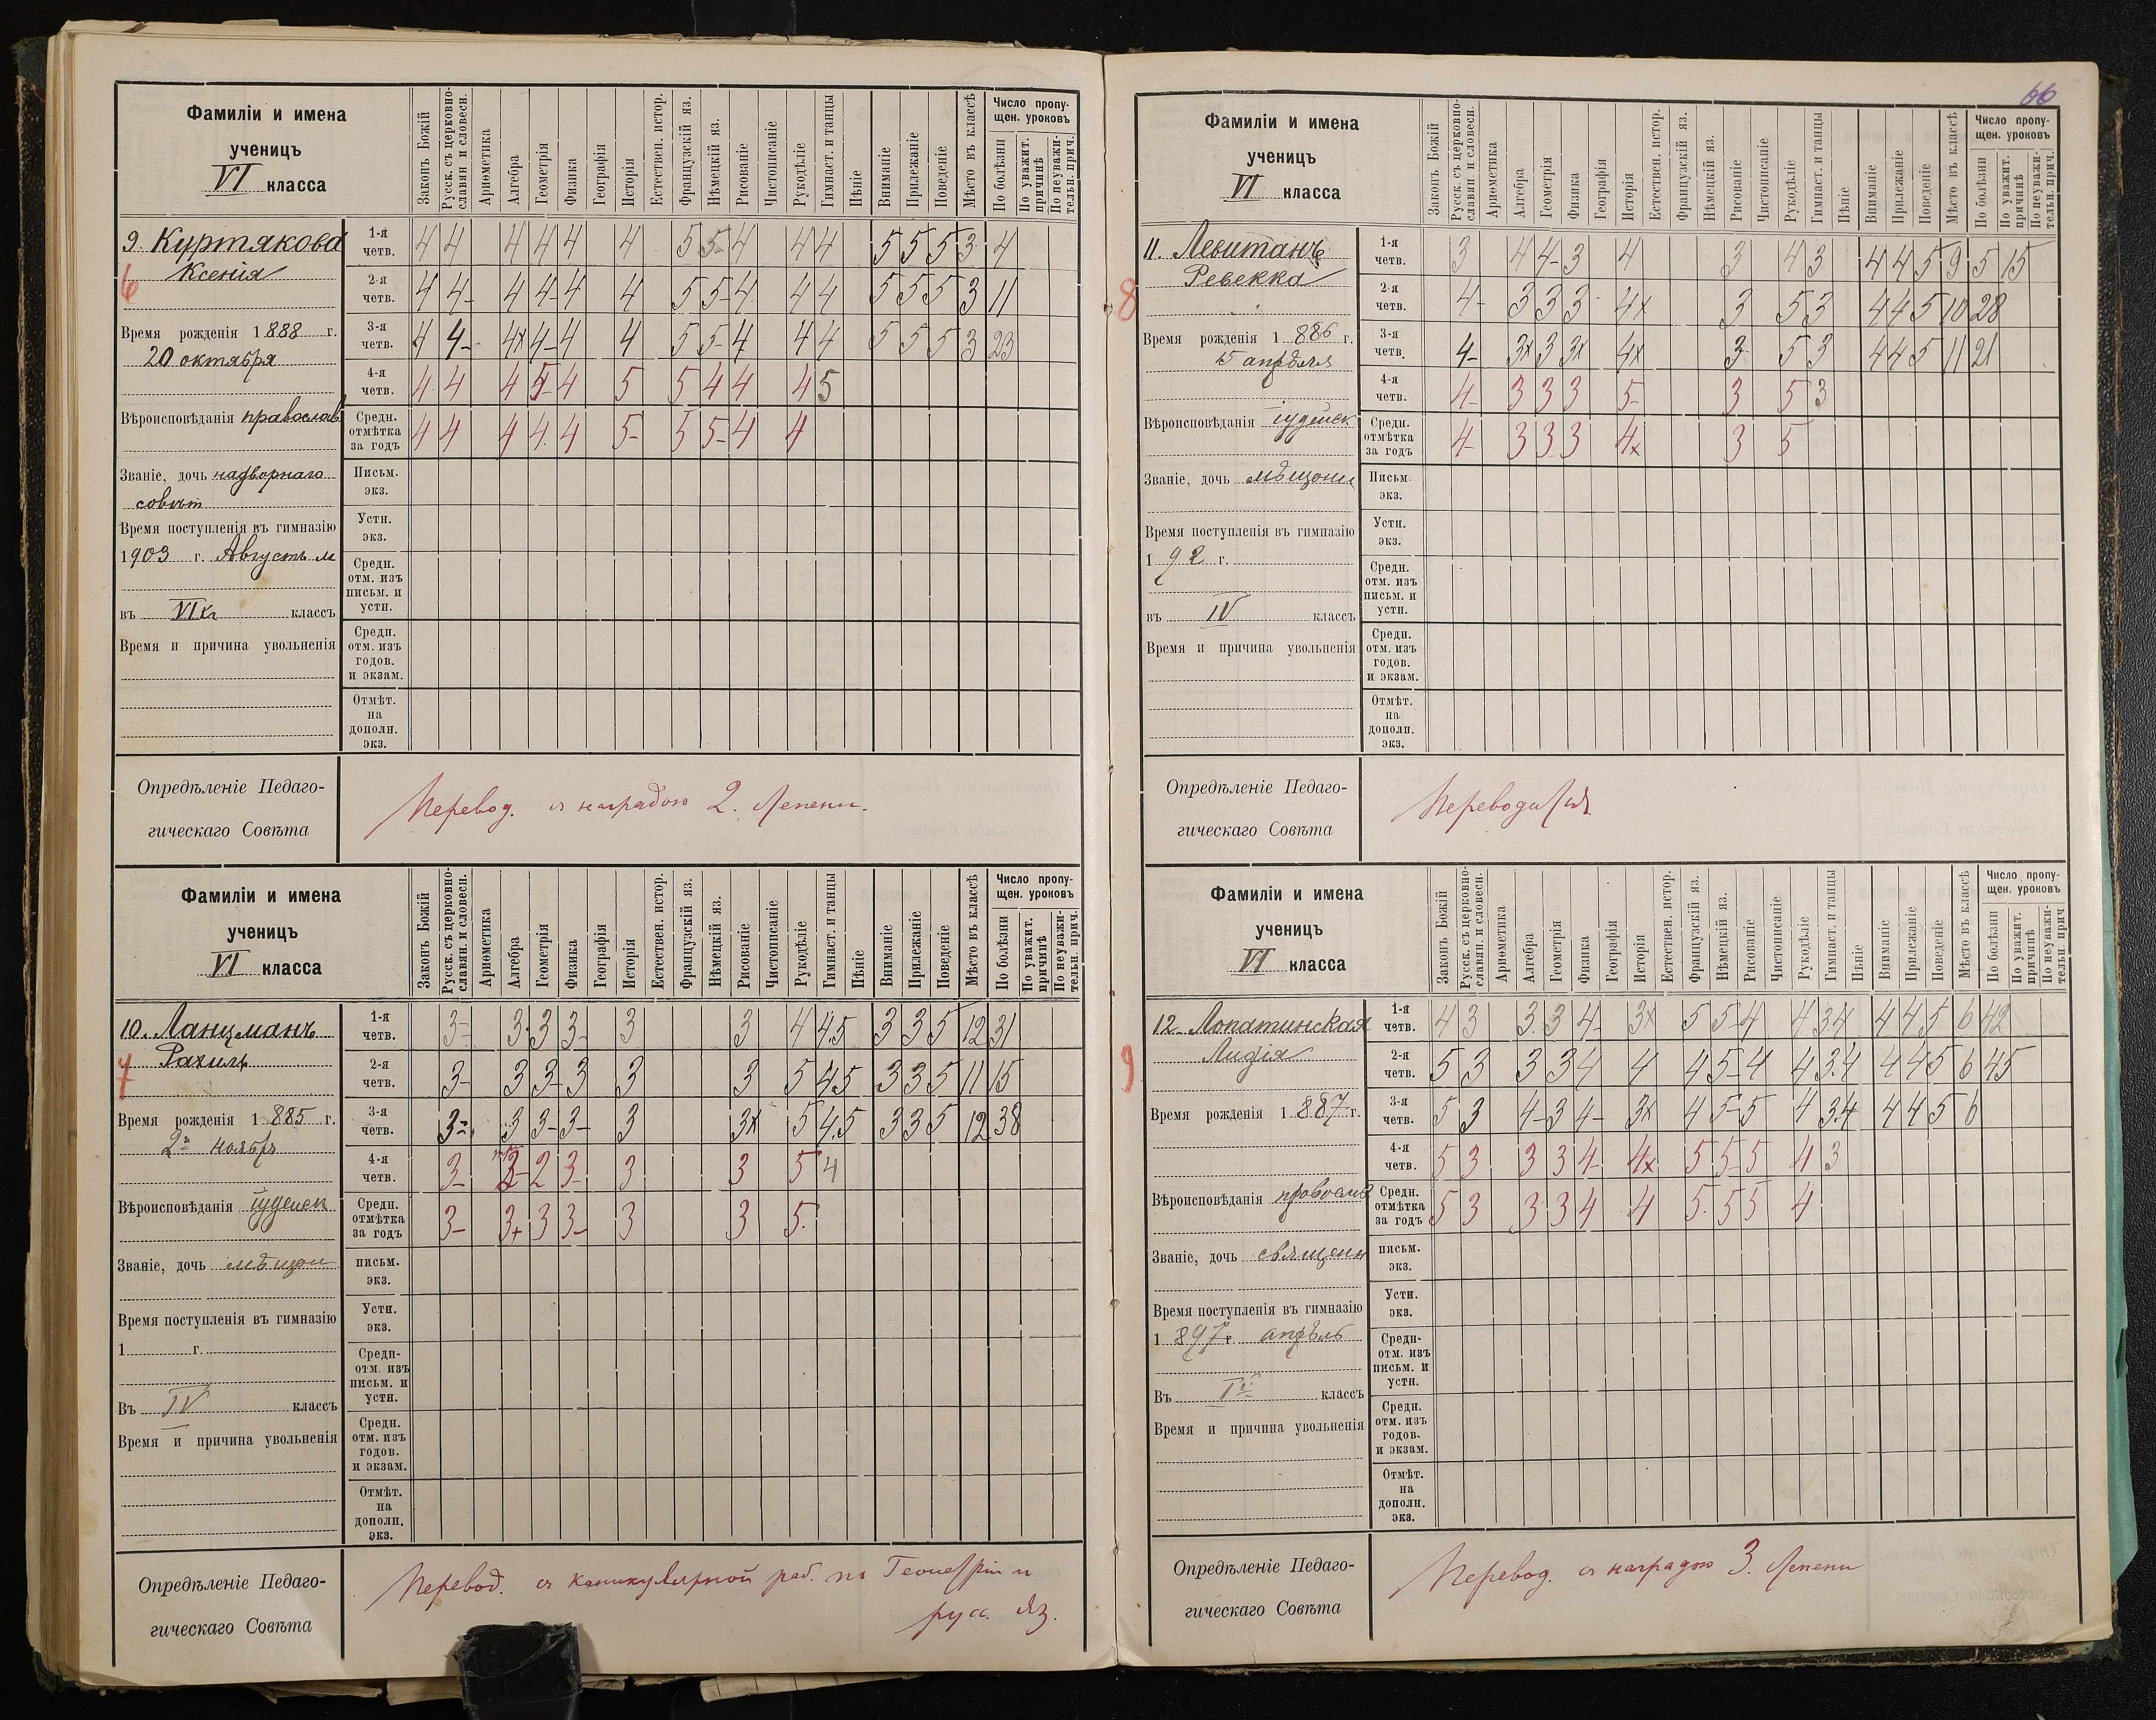 66
Фамиліи и имена
ученицъ
VI класса
Законъ Божій
Русск. съ церковно-
славян и словесн.
Ариѳметика
Алгебра
Геометрія
Физика
Географія
Исторія
Естествен. истор.
Французскій яз.
Нѣмецкій яз.
Рисованіе
Чистописаніе
Рукодѣліе
Гимнаст. и танцы
Пѣніе
Вниманіе
Прилежаніе
Поведеніе
Мѣсто въ классѣ
Число пропу-
щен. уроковъ
По болѣзни
По уважит.
причинѣ
По неуважи-
тельн. прич.
9. Куртякова
Ксенія
6
Время рожденія 1888 г.
20 октября
Вѣроисповѣданія православ
Званіе, дочь надворнаго
совѣт
Время поступленія въ гимназію
1903 г. Августъ м
въ VI кл классъ
Время и причина увольненія
1-я четв. 4 4 4 4 4 4 5 5- 4 4 4 5 5 5 3 4
2-я четв. 4 4- 4 4- 4 4 5 5- 4 4 4 5 5 5 3 11
3-я четв. 4 4- 4x 4- 4 4 5 5- 4 4 4 5 5 5 3 23
4-я четв. 4 4 4 5- 4 5 5 4 4 4 5
Средн. отмѣтка за годъ 4 4 4 4. 4 5- 5 5- 4 4
Письм. экз.
Устн. экз.
Средн. отм. изъ письм. и устн.
Средн. отм. изъ годов. и экзам.
Отмѣт. на дополн. экз.
Опредѣленіе Педаго-
гическаго Совѣта
Перевод. съ наградою 2. степени.
Фамиліи и имена
ученицъ
VI класса
Законъ Божій
Русск. съ церковно-
славян. и словесн.
Ариѳметика
Алгебра
Геометрія
Физика
Географія
Исторія
Естествен. истор.
Французскій яз.
Нѣмецкій яз.
Рисованіе
Чистописаніе
Рукодѣліе
Гимнаст. и танцы
Пѣніе
Вниманіе
Прилежаніе
Поведеніе
Мѣсто въ классѣ
Число пропу-
щен. уроковъ
По болѣзни
По уважит.
причинѣ
По неуважи-
тельн. прич.
10. Ланцманъ
Рахиль
7
Время рожденія 1885 г.
2го ноябр
Вѣроисповѣданія іудейск
Званіе, дочь мѣщан
Время поступленія въ гимназію
1 г.
Въ IV классъ
Время и причина увольненія
1-я четв. 3- 3. 3 3- 3 3 4 4.5 3 3 5 12 31
2-я четв. 3- 3 3- 3 3 3 5 4.5 3 3 5 11 15
3-я четв. 3= 3 3- 3- 3 3x 5 4.5 3 3 5 12 38
4-я четв. 3- 2 3- 3 3 5 4
Средн. отмѣтка за годъ 3- 3+ 3 3- 3 3 5.
письм. экз.
Устн. экз.
Средн- отм. изъ письм. и устн.
Средн. отм. изъ годов. и экзам.
Отмѣт. на дополн. экз.
Опредѣленіе Педаго-
гическаго Совѣта
Перевод. съ каникулярной раб. по Геометріи и
русс. яз.
Фамиліи и имена
ученицъ
VI класса
Законъ Божій
Русск. съ церковно-
славян и словесн.
Ариѳметика
Алгебра
Геометрія
Физика
Географія
Исторія
Естествен. истор.
Французскій яз.
Нѣмецкій яз.
Рисованіе
Чистописаніе
Рукодѣліе
Гимнаст. и танцы
Пѣніе
Вниманіе
Прилежаніе
Поведеніе
Мѣсто въ классѣ
Число пропу-
щен. уроковъ
По болѣзни
По уважит.
причинѣ
По неуважи-
тельн. прич.
11. Левитанъ
Ревекка
8
Время рожденія 1886 г.
15 апрѣля
Вѣроисповѣданія іудейск
Званіе, дочь мѣщани
Время поступленія въ гимназію
1 92 г.
въ IV классъ
Время и причина увольненія
1-я четв. 3 4 4- 3 4 3 4 3 4 4 5 9 5 15
2-я четв. 4- 3 3 3 4x 3 5 3 4 4 5 10 28
3-я четв. 4- 3x 3 3x 4x 3 5 3 4 4 5 11 21
4-я четв. 4- 3 3 3 5- 3 5 3
Средн. отмѣтка за годъ 4- 3 3 3 4x 3 5
Письм. экз.
Устн. экз.
Средн. отм. изъ письм. и устн.
Средн. отм. изъ годов. и экзам.
Отмѣт. на дополн. экз.
Опредѣленіе Педаго-
гическаго Совѣта
Переводится
Фамиліи и имена
ученицъ
VI класса
Законъ Божій
Русск. съ церковно-
славян. и словесн.
Ариѳметика
Алгебра
Геометрія
Физика
Географія
Исторія
Естествен. истор.
Французскій яз.
Нѣмецкій яз.
Рисованіе
Чистописаніе
Рукодѣліе
Гимнаст. и танцы
Пѣніе
Вниманіе
Прилежаніе
Поведеніе
Мѣсто въ классѣ
Число пропу-
щен. уроковъ
По болѣзни
По уважит.
причинѣ
По неуважи-
тельн. прич
12. Лопатинская
Лидія
9
Время рожденія 1887 г.
Вѣроисповѣданія православ
Званіе, дочь священн
Время поступленія въ гимназію
1897 г. апрѣль
Въ классъ
Время и причина увольненія
1-я четв. 4 3 3. 3 4- 3x 5 5- 4 4 3.4 4 4 5 6 42
2-я четв. 5 3 3 3 4 4 4 5- 4 4 3.4 4 4 5 6 45
3-я четв. 5 3 4- 3 4- 3x 4 5- 5 4 3.4 4 4 5 6
4-я четв. 5 3 3 3 4- 4x 5 5- 5 4 3
Средн. отмѣтка за годъ 5 3 3 3 4 4 5. 5 5 4
письм. экз.
Устн. экз.
Средн- отм. изъ письм. и устн.
Средн. отм. изъ годов. и экзам.
Отмѣт. на дополн. экз.
Опредѣленіе Педаго-
гическаго Совѣта
Перевод. съ наградою 3. степени